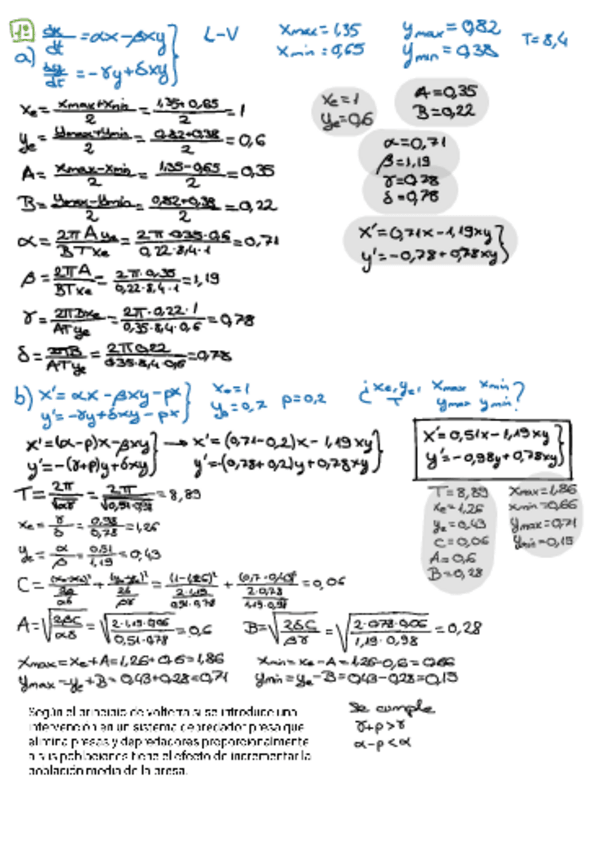 1º dx/dt = αx - βxy } L-V xmax = 1,35 ymax = 0,82 T = 8,4
a) dy/dt = -γy + δxy } xmin = 0,65 ymin = 0,38
xe = (xmax + xmin)/2 = (1,35 + 0,65)/2 = 1
ye = (ymax + ymin)/2 = (0,82 + 0,38)/2 = 0,6
A = (xmax - xmin)/2 = (1,35 - 0,65)/2 = 0,35
B = (ymax - ymin)/2 = (0,82 + 0,38)/2 = 0,22
α = 2πAye/BTxe = 2π·0,35·0,6/0,22·8,4·1 = 0,71
β = 2πA/BTxe = 2π·0,35/0,22·8,4·1 = 1,19
γ = 2πBxe/ATye = 2π·0,22·1/0,35·8,4·0,6 = 0,78
δ = 2πB/ATye = 2π·0,22/0,35·8,4·0,6 = 0,78
xe = 1
ye = 0,6
A = 0,35
B = 0,22
α = 0,71
β = 1,19
γ = 0,78
δ = 0,78
x' = 0,71x - 1,19xy }
y' = -0,78 + 0,78xy }
b) x' = αx - βxy - px } xe = 1 p = 0,2 ¿ xe, ye, xmax xmin ?
y' = -γy + δxy - px } ye = 0,7 T ymax ymin
x' = (α - p)x - βxy } → x' = (0,71 - 0,2)x - 1,19xy }
y' = -(γ + p)y + δxy } y' = -(0,78 + 0,2)y + 0,78xy }
x' = 0,51x - 1,19xy }
y' = -0,98y + 0,78xy }
T = 2π/√αγ = 2π/√0,51·0,98 = 8,89
xe = γ/δ = 0,98/0,78 = 1,26
ye = α/β = 0,51/1,19 = 0,43
T = 8,89
xe = 1,26
ye = 0,43
C = 0,06
A = 0,6
B = 0,28
xmax = 1,86
xmin = 0,66
ymax = 0,71
ymin = 0,15
A = √(2βC/αδ) = √(2·1,19·0,06/0,51·0,78) = 0,6 B = √(2δC/βγ) = √(2·0,78·0,06/1,19·0,98) = 0,28
xmax = xe + A = 1,26 + 0,6 = 1,86 xmin = xe - A = 1,26 - 0,6 = 0,66
ymax = ye + B = 0,43 + 0,28 = 0,71 ymin = ye - B = 0,43 - 0,28 = 0,15
Según el principio de volterra si se introduce una
intervención en un sistema depredador presa que
elimina presas y depredadores proporcionalmente
a sus poblaciones tiene el efecto de incrementar la
población media de la presa.
Se cumple
γ + p > γ
α - p < α